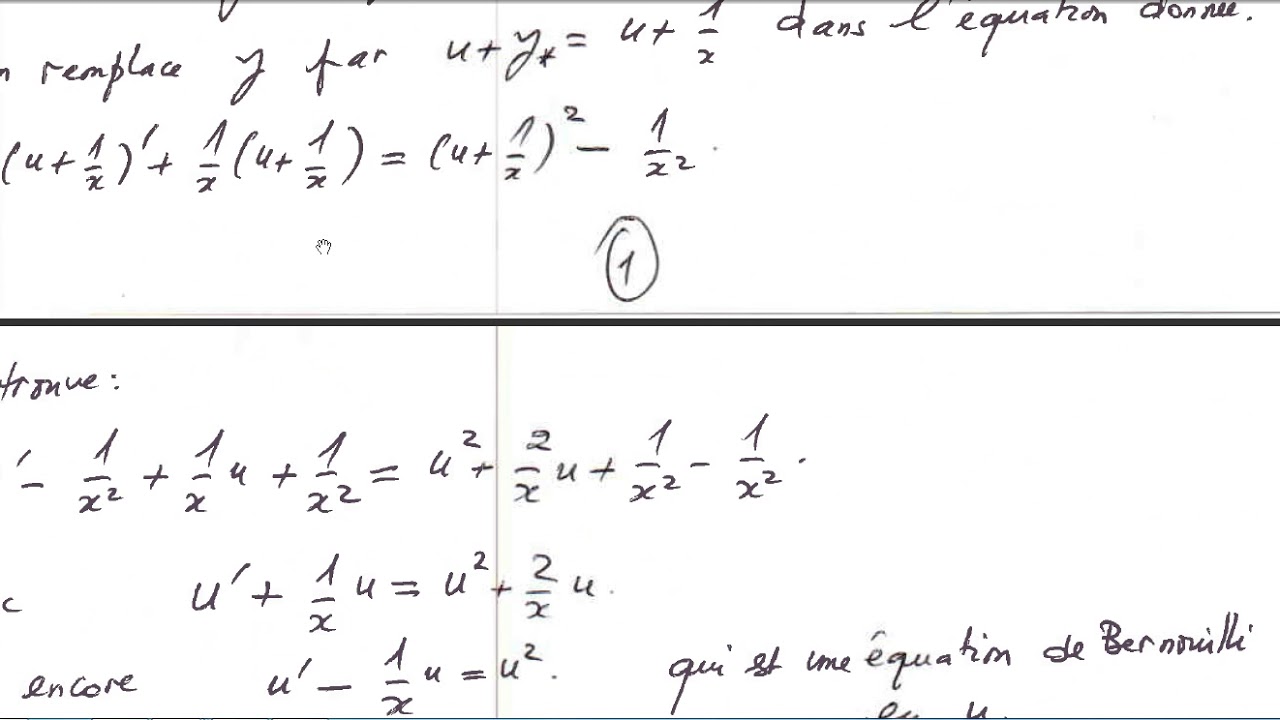 n remplace y par u + y* = u + 1/x dans l'équation donnée.
(u + 1/x)' + 1/x (u + 1/x) = (u + 1/x)² - 1/x².
1
trouve:
' - 1/x² + 1/x u + 1/x² = u² + 2/x u + 1/x² - 1/x².
c u' + 1/x u = u² + 2/x u.
encore u' - 1/x u = u². qui est une équation de Bernouilli
en u